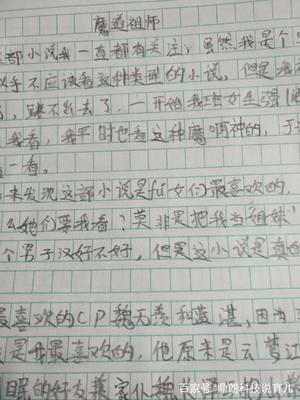 魔道祖师
部小说我一直都有关注，虽然我是个
以乎不应该看这种类型的小说，但是我
，跳不出去了，一开始我班女生强
我看，我平时也看这种魔啊神的，于
看一看。
来发现这部小说是fu女们最喜欢的，
么她们要我看？莫非是把我当姐妹！
个男子汉好不好，但是这小说是真的
最喜欢的CP魏无羡和蓝湛，因为
是我最喜欢的，他原来是云梦江
眠的好友兼家仆魏
百家号/鼎朗科技说育儿